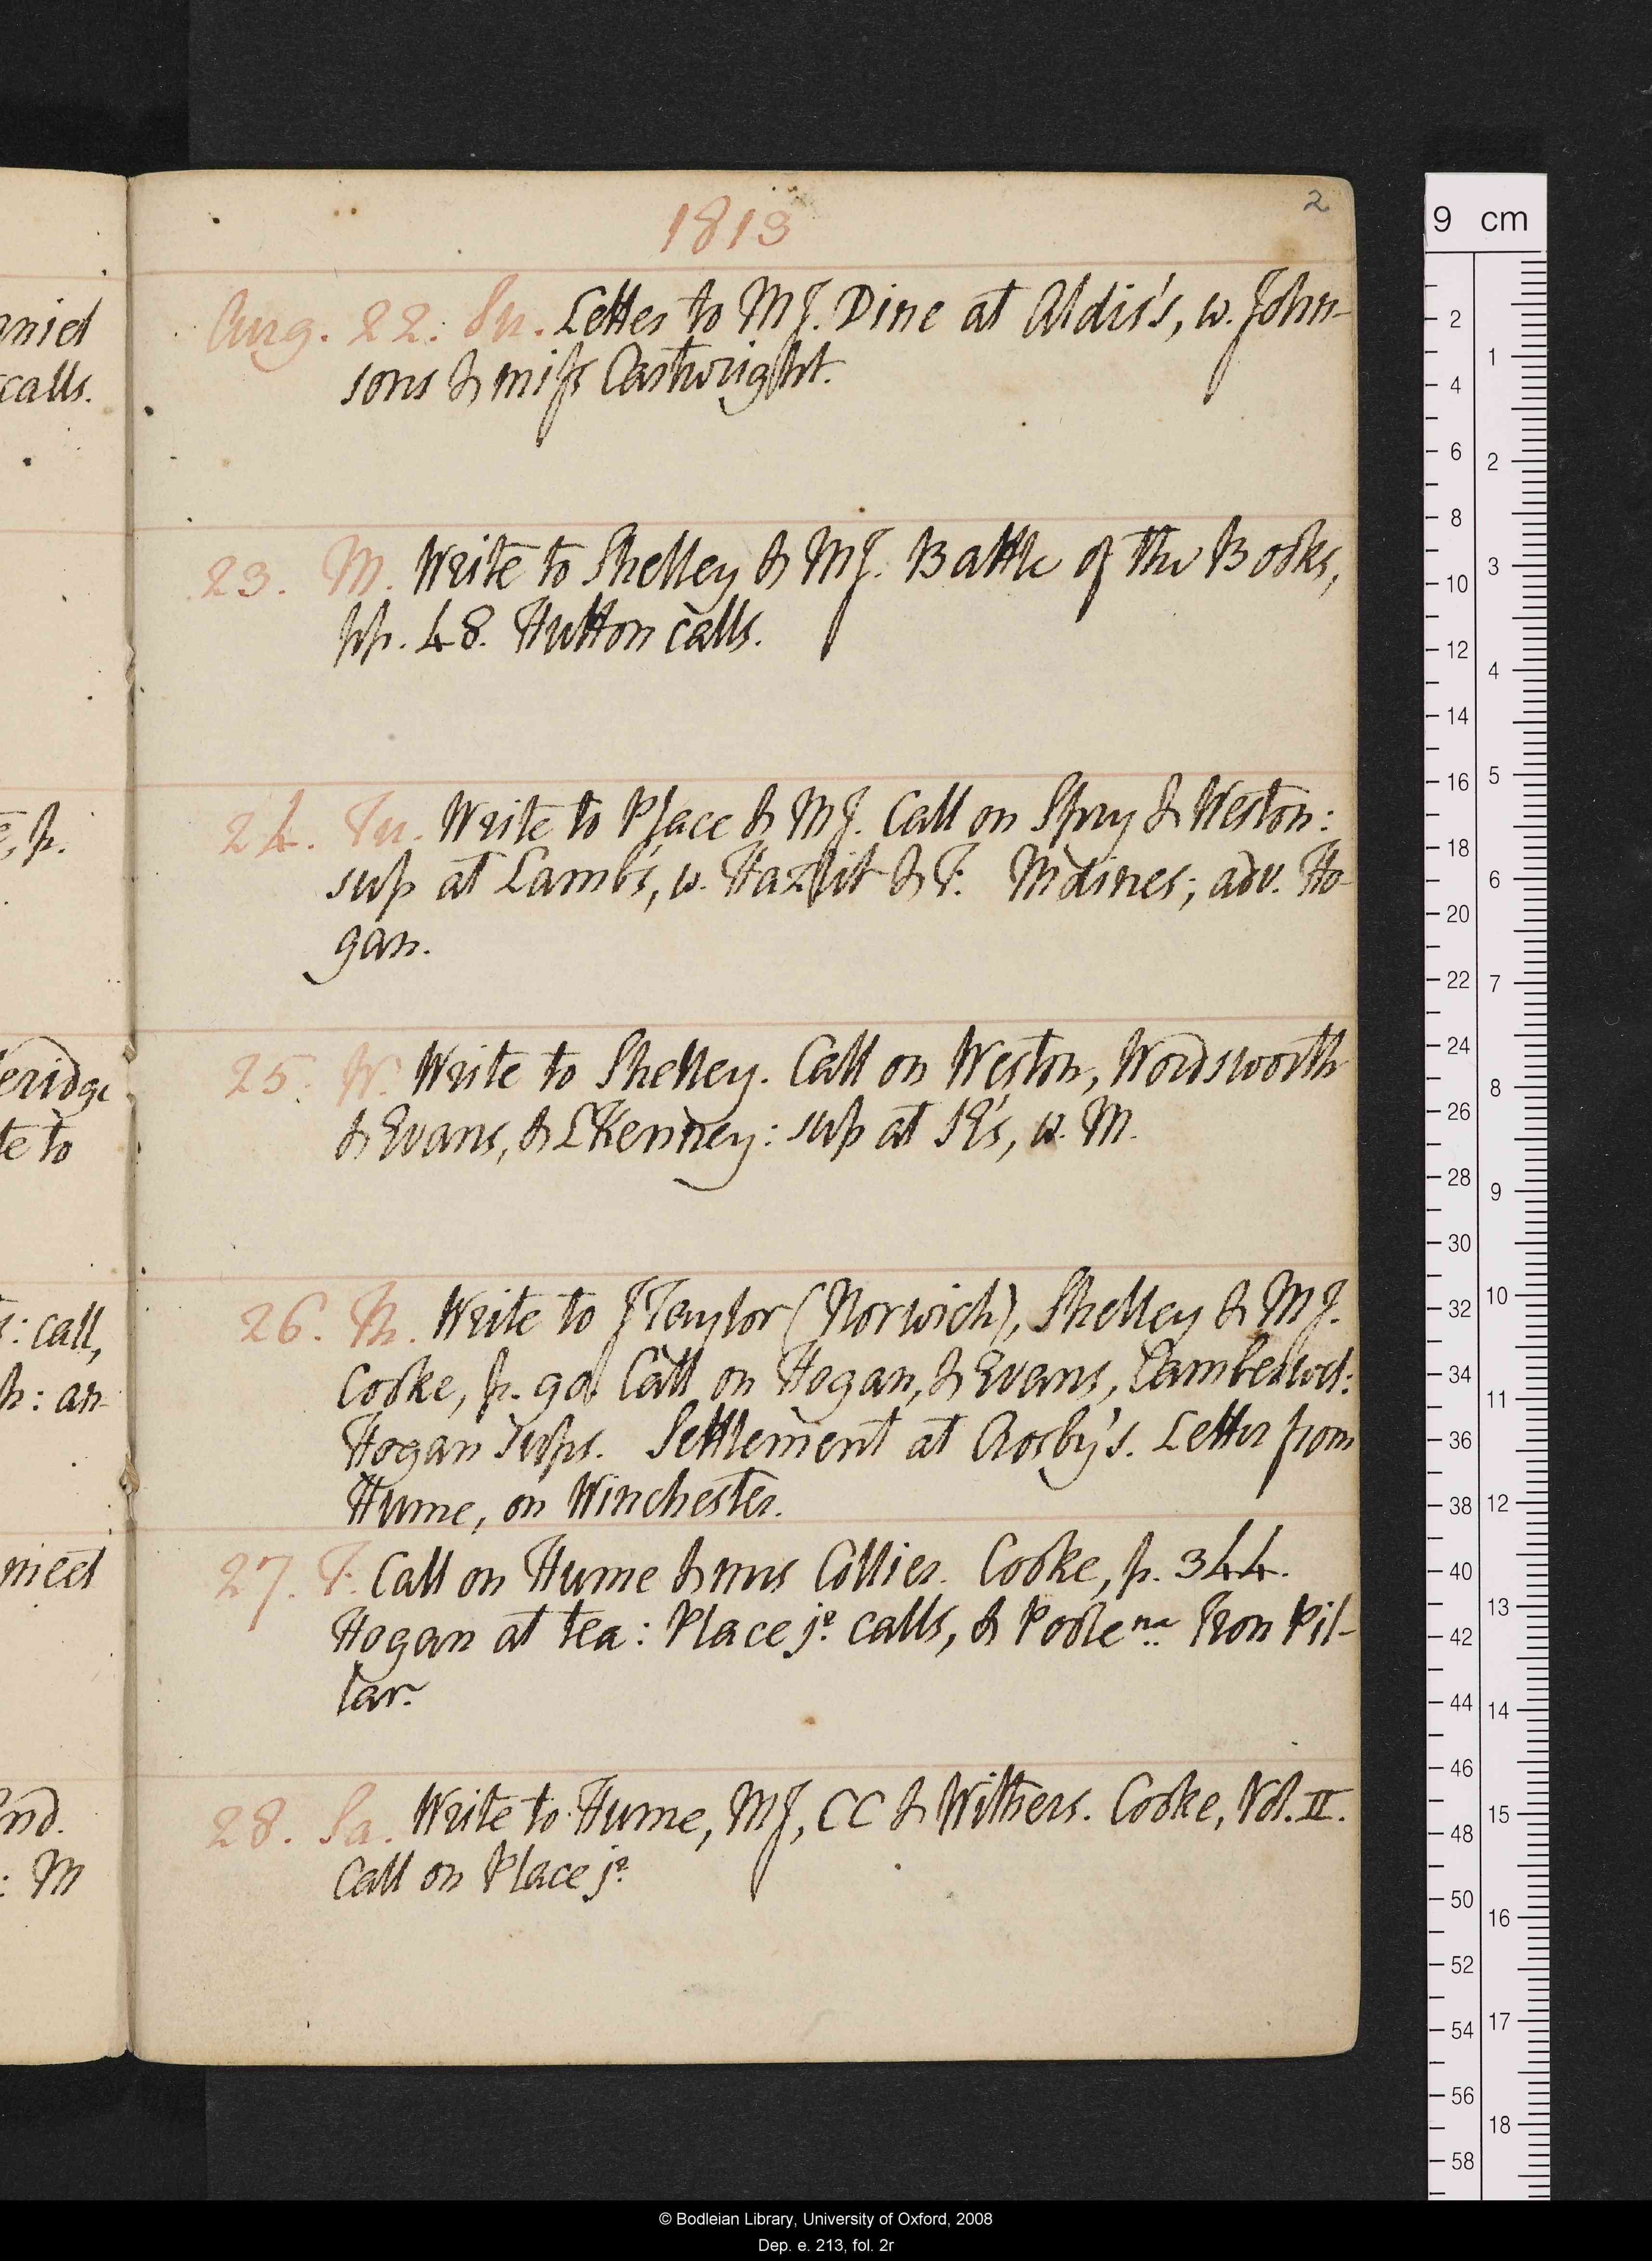 2
1813
Aug. 22. Su. Letter to MJ. Dine at Aldis's, w. John-
sons & miss Cartwright.
23. M. Write to Shelley & MJ. Battle of the Books,
pp. 48. Hutton calls.
24. Tu. Write to Place & MJ. Call on Spry & Weston:
sup at Lamb's, w. Hazlit & F. M dines; adv. Ho-
gan.
25. W. Write to Shelley. Call on Weston, Wordsworth
& Evans, & L'Kenney: sup at 's, w. M.
26. Th. Write to J Taylor (Norwich), Shelley & MJ.
Cooke, p. 90. Call on Hogan, & Evans, Camberwel:
Hogan sups. Settlement at Crosby's. Letter from
Hume, on Winchester.
27. F. Call on Hume & mrs Collier. Cooke, p. 344.
Hogan at tea: Place jr. calls, & Poole na Iron Pil-
lar.
28. Sa. Write to Hume, MJ, CC & Withers. Cooke, Vol. II.
Call on Place jr.
niel
calls.
p.
eridge
te to
: call,
h: an-
meet
nd.
: M
9 cm
2
4
6
8
10
12
14
16
18
20
22
24
26
28
30
32
34
36
38
40
42
44
46
48
50
52
54
56
58
1
2
3
4
5
6
7
8
9
10
11
12
13
14
15
16
17
18
© Bodleian Library, University of Oxford, 2008
Dep. e. 213, fol. 2r